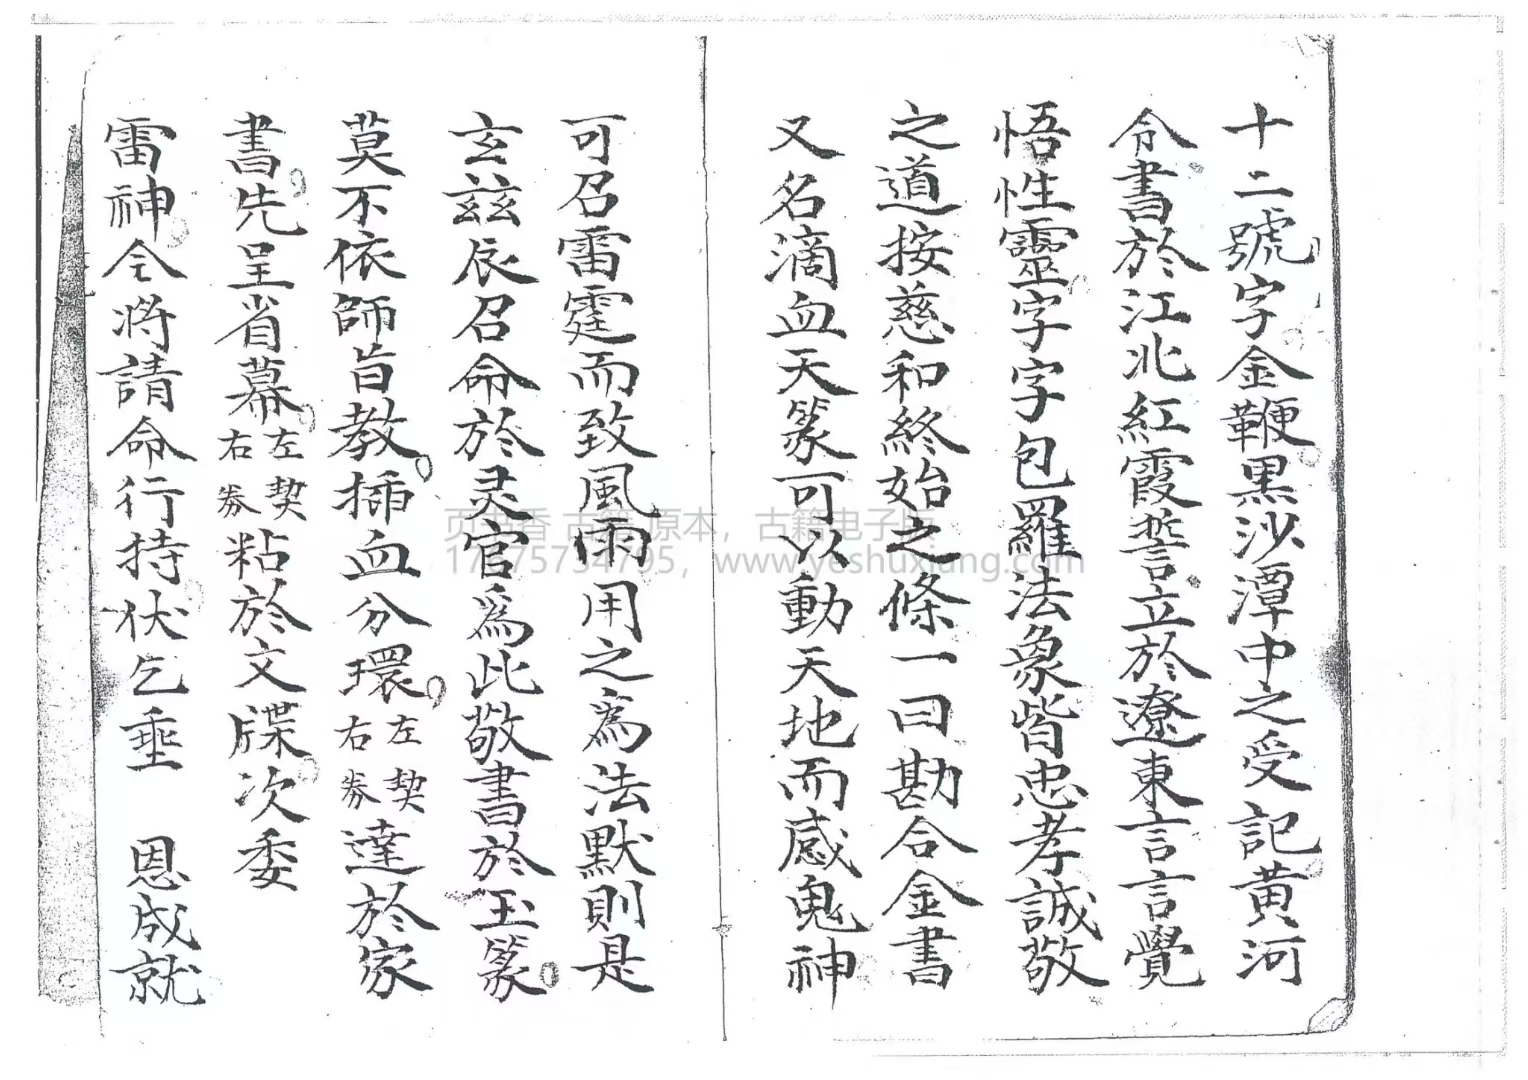 十二號字金鞭黑沙潭中之受記黃河
令書於江北紅霞誓立於遼東言言覺
悟性靈字字包羅法象皆忠孝誠敬
之道按慈和終始之條一曰勘合金書
又名滴血天篆可以動天地而感鬼神
可召雷霆而致風雨用之為法默則是
玄茲辰召命於灵官為此敬書於玉篆
莫不依師旨教插血分環左契右券達於家
書先呈省幕左契右券粘於文牒次委
雷神仝將請命行持伏乞垂 恩成就
古籍 原本，古籍电子
17675734795，www.yeshuxiang.com